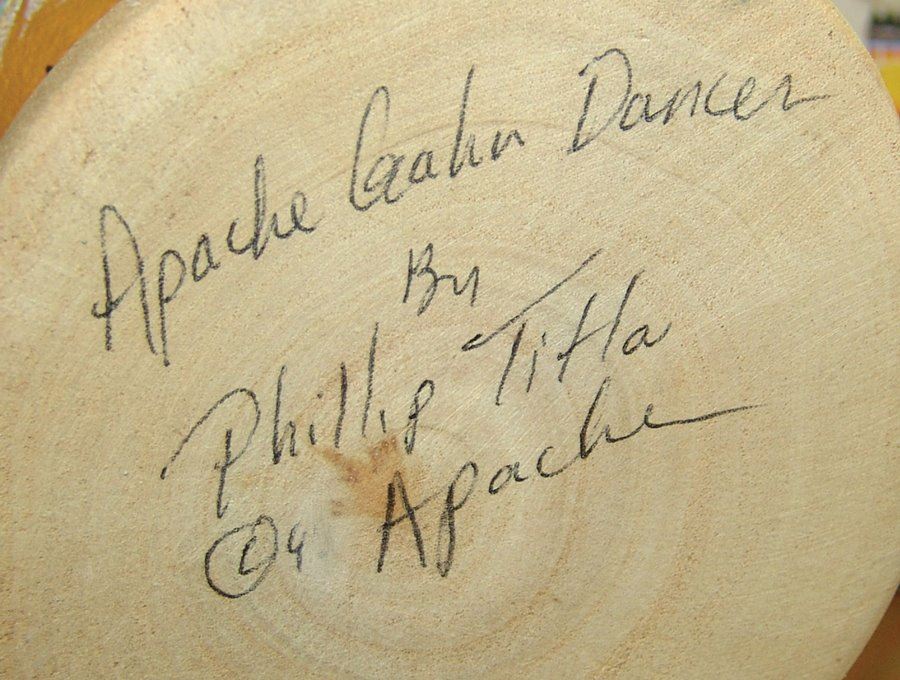 Apache Gahn Dancer
By
Phillip Titla
© Apache